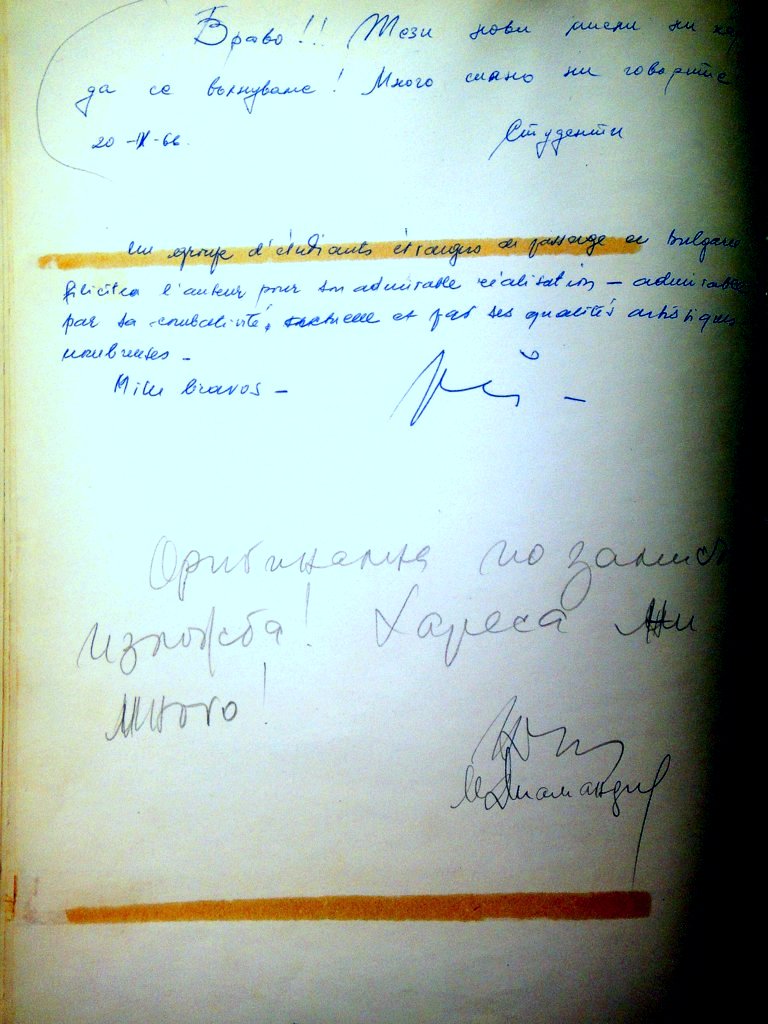 Браво!! Тези нови мисли ни
да се вълнуваме! Много силно ни говорите
20-IX-66.
Студенти
Un groupe d'étudiants étrangers de passage en Bulgarie
félicitea l'auteur pour son admirable réalisation – admirable
par sa combativité, et par ses qualités artistiques
nombreuses –
Mille bravos –
Оригинална по замисъл
изложба! Хареса ми
много!